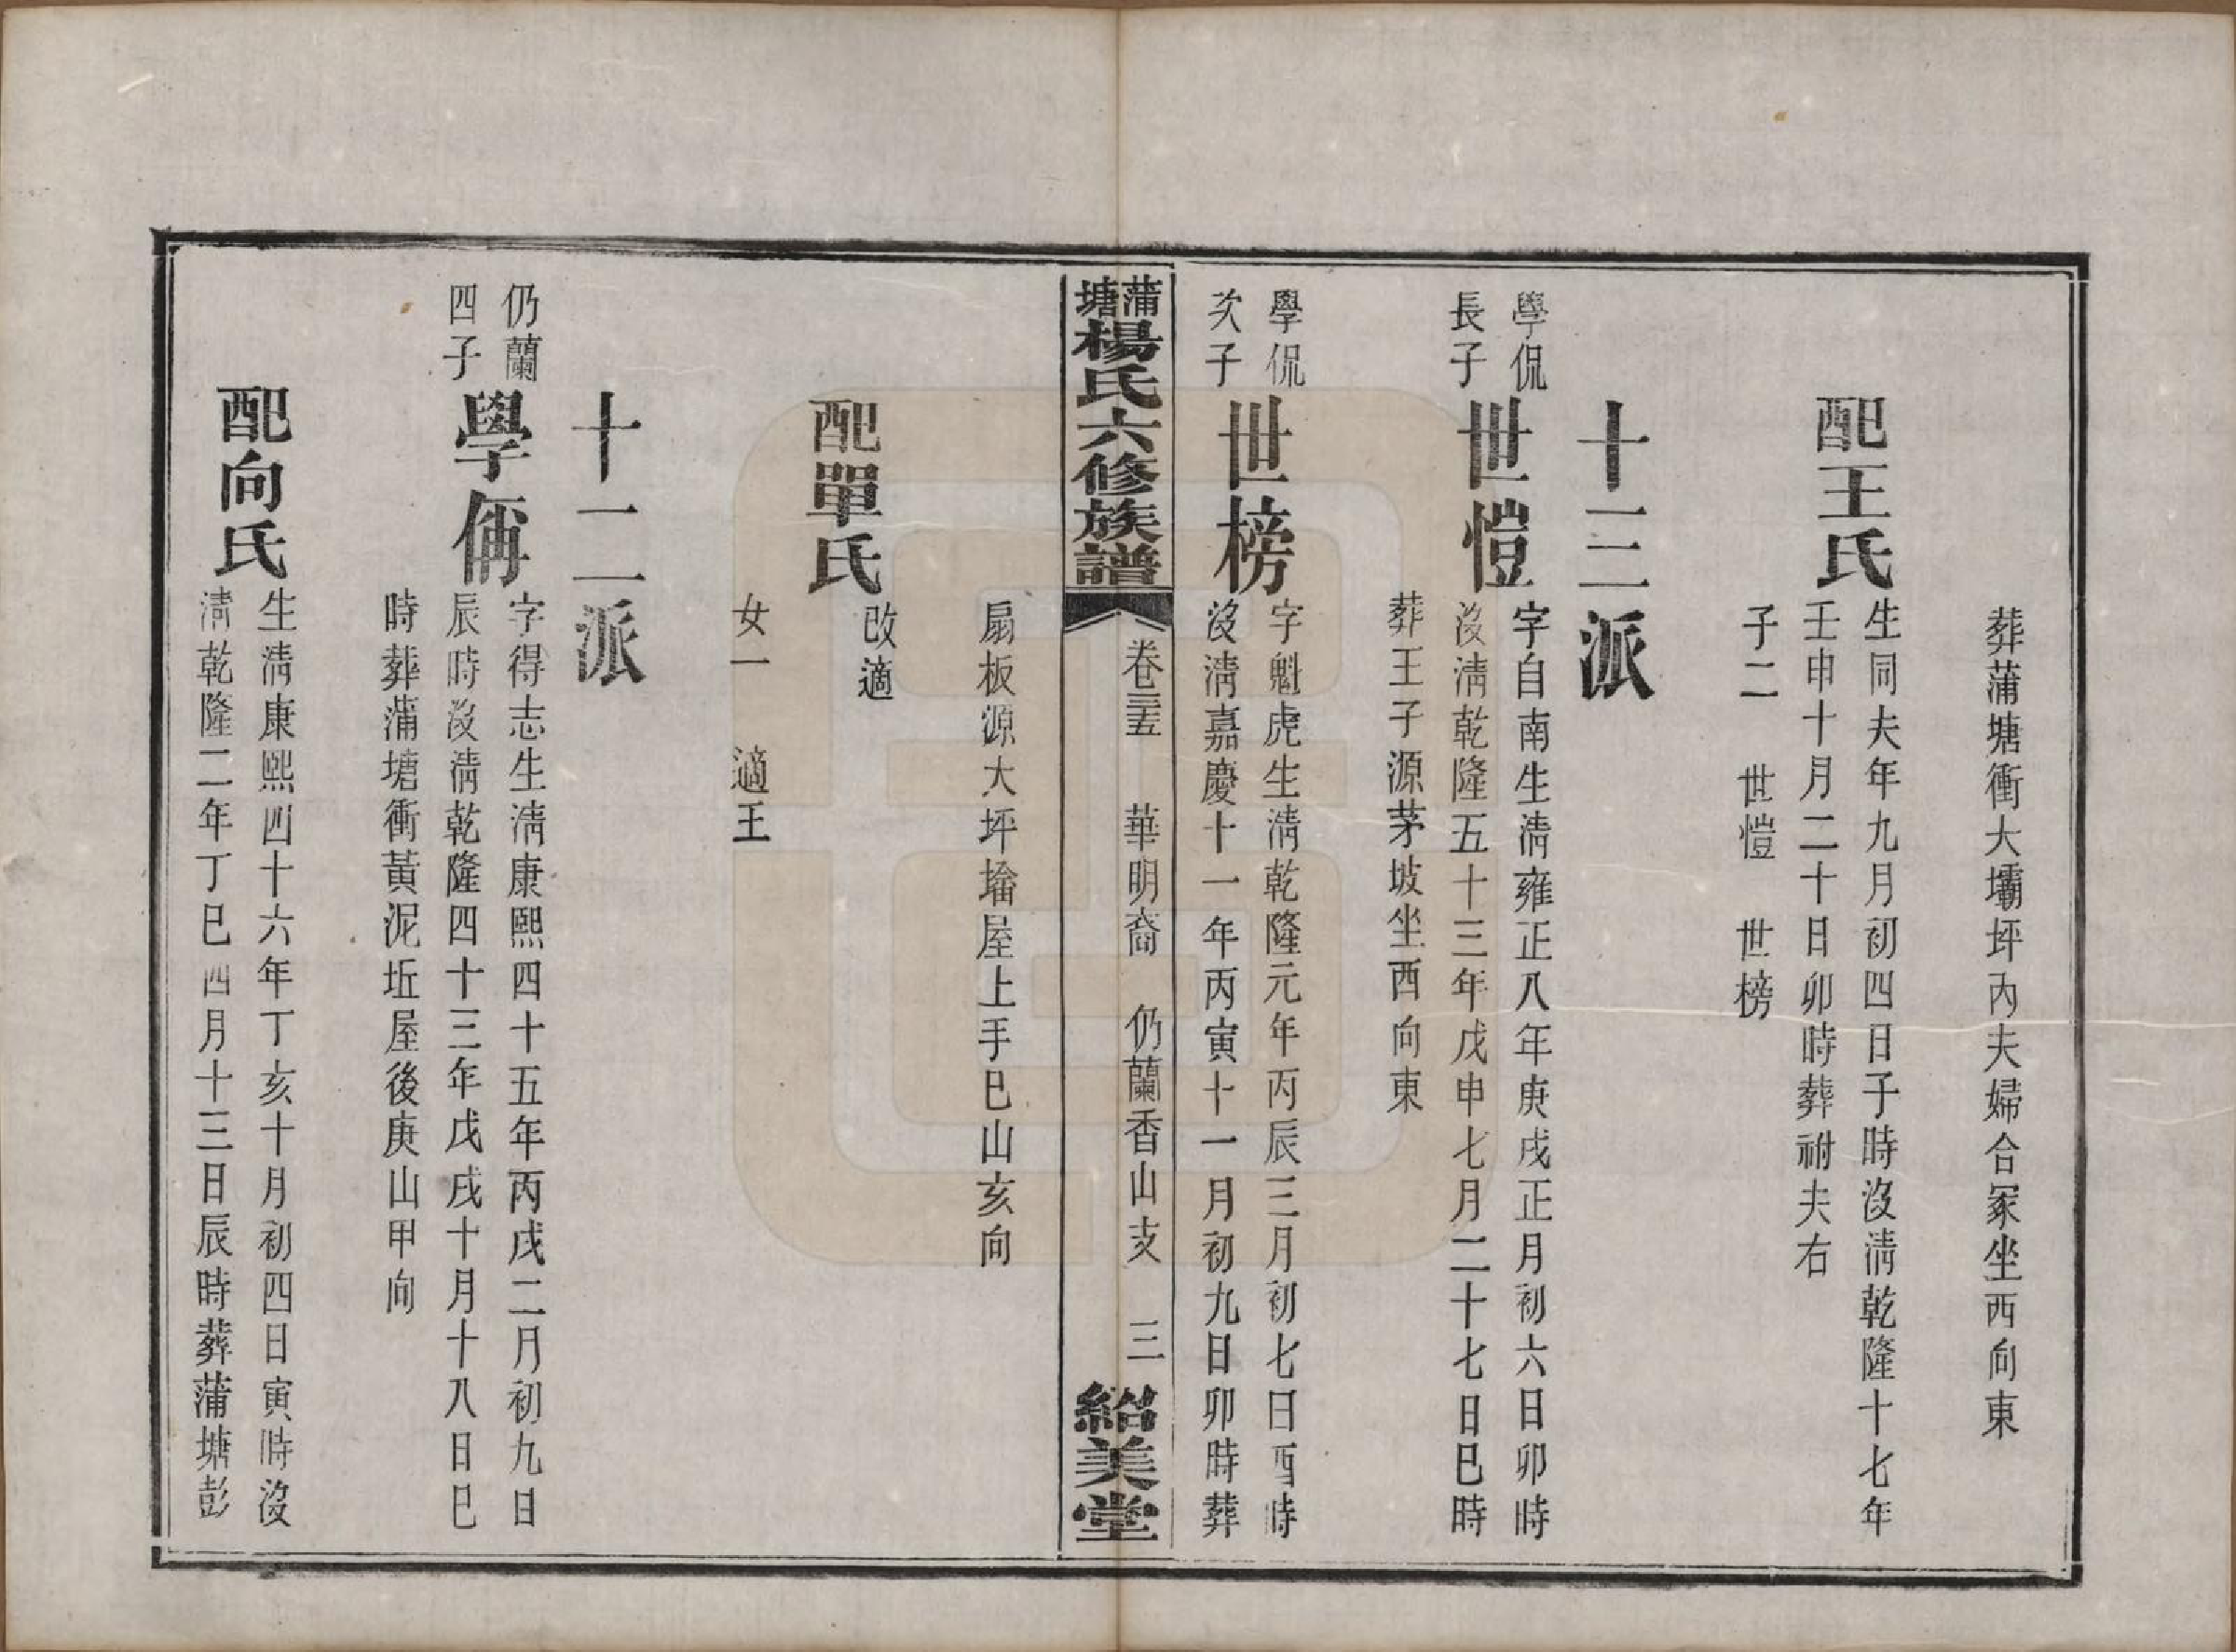 葬蒲塘衝大壩坪內夫婦合冢坐西向東
配王氏
生同夫年九月初四日子時沒清乾隆十七年
壬申十月二十日卯時葬祔夫右
子二　世愷　世榜
十三派
學侃
長子
世愷
字自南生清雍正八年庚戌正月初六日卯時
沒清乾隆五十三年戊申七月二十七日巳時
葬王子源茅坡坐西向東
學侃
次子
世榜
字魁虎生清乾隆元年丙辰三月初七日酉時
沒清嘉慶十一年丙寅十一月初九日卯時葬
蒲塘楊氏六修族譜
卷三五　華明裔　仍蘭香山支　三
紹美堂
扇板源大坪墖屋上手巳山亥向
配單氏
改適
女一　適王
十二派
仍蘭
四子
學偁
字得志生清康熙四十五年丙戌二月初九日
辰時沒清乾隆四十三年戊戌十月十八日巳
時葬蒲塘衝黃泥坵屋後庚山甲向
配向氏
生清康熙四十六年丁亥十月初四日寅時沒
清乾隆二年丁巳四月十三日辰時葬蒲塘彭